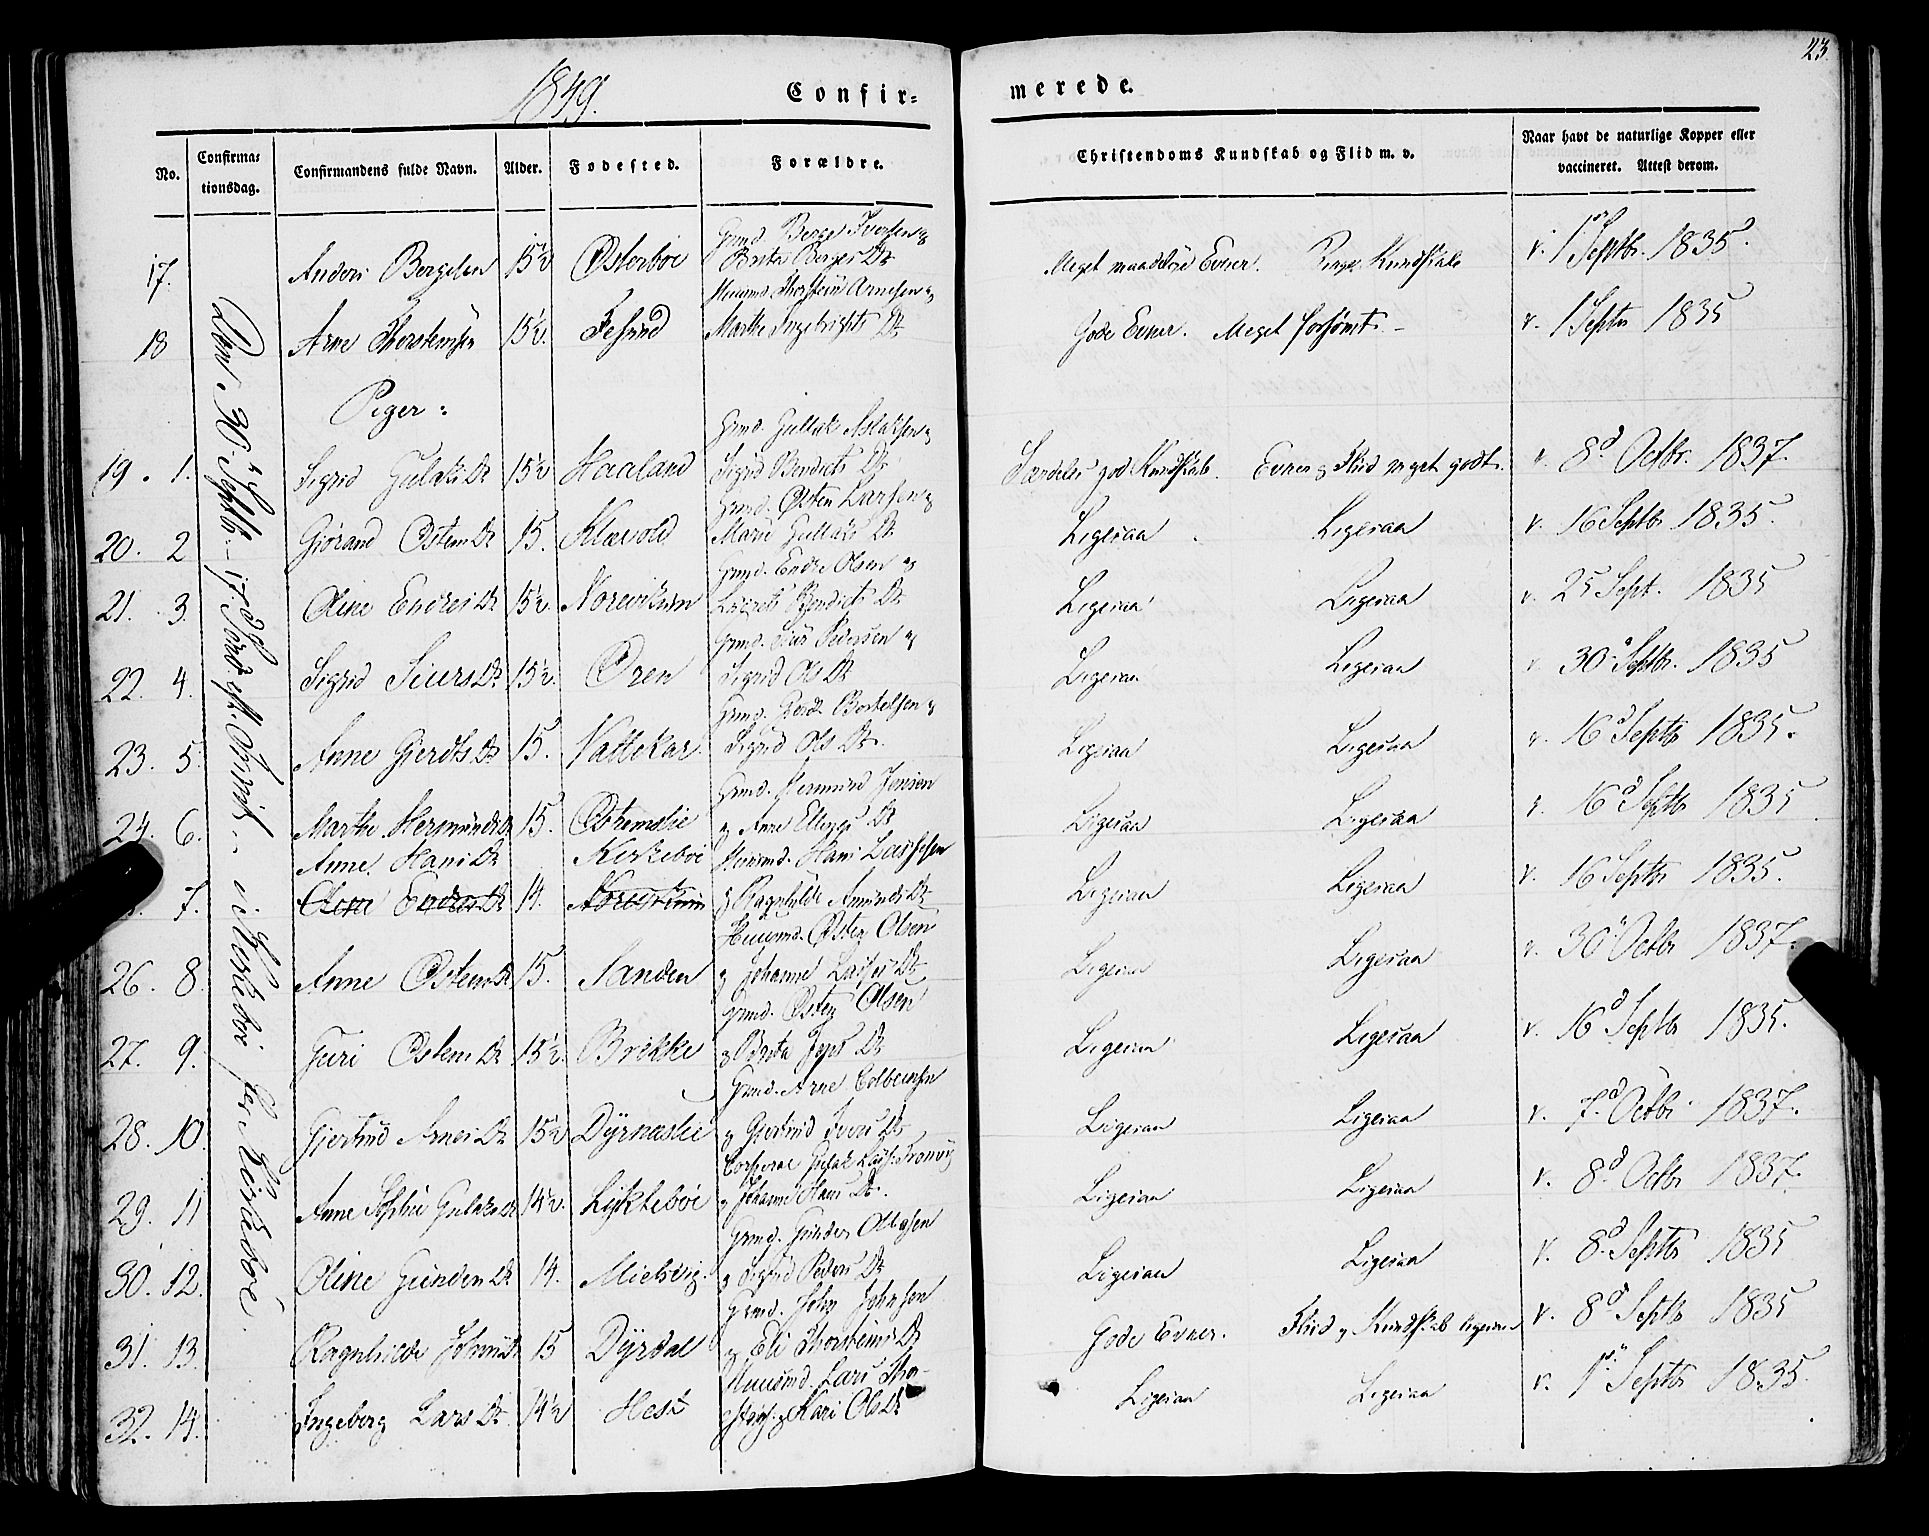 23.
1849.
Confir-
merede.
No.
Confirma-
tionsdag.
Confirmandens fulde Navn.
Alder.
Fødested.
Forældre.
Christendoms Kundskab og Flid m. v.
Naar havt de naturlige Kopper eller
vaccineret. Attest derom.
Den 30 Septbr. - 17 Sønd. eft. i Kirkebøe for Kirkebøe
Gmd. Berge Iversen og
17. Anders Bergesen 15½ Østerbøe Brita Berges Dr. Meget maadelige Evner. Ringe Kundskab v. 1 Septbr. 1835.
Huusmd. Thorstein Arnesen og
18 Arne Thorstensen 15½. Marthe Ingebrigts Dr. Gode Evner. Meget forsømt. - v. 1 Septbr 1835
Piger:
Gmd. Gullak Aslaksen og
19. 1. Sigrid Gulaks Dr 15½ Haaland Sigrid Bendicts Dr Særdeles god Kundskab. Evner og Flid meget godt. v. 8d Octbr. 1837.
Gmd. Østen Larsen og
20. 2 Giørand Østens Dr 15. Klævold Marie Gullaks Dr. Ligesaa. Ligesaa v. 16 Septbr 1835.
Gmd. Endre Olsen og
21. 3. Oline Endres Dr 15½ Norevikum Bendicts Dr. Ligesaa Ligesaa v. 25 Sept. 1835
Gmd. Siur Pedersen og
22. 4. Sigrid Siurs Dr 15½. Øren Sigrid Ols Dr Ligesaa Ligesaa v. 30 Septbr. 1835
Gmd. Gierdt Bottelsen og
23. 5. Anne Gierdts Dr 15. Nattekar Sigrid Ols Dr. Ligesaa Ligesaa v. 16d Septbr 1835.
Gmd. Hermund Jensen
24. 6. Marthe Hermunds Dr 15. Østemslie og Anne Ellings Dr Ligesaa Ligesaa v. 16d Septbr 1835
Anne Hans Dr Kirkebøe Huusmd. Hans Lassesen
7. Oline Endres Dr 14. Norevikum og Ragnhilde Amunds Dr Ligesaa Ligesaa v. 16 Septbr 1835.
Huusmd. Østen Olsen
26. 8. Anne Østens Dr 15. Nanden og Johanne Lasses Dr Ligesaa Ligesaa v. 30 Octbr 1837.
Gmd. Østen Olsen
27. 9. Guri Østens Dr 15½. Brekke og Brita Dr Ligesaa Ligesaa v. 16d Septbr 1835.
Gmd. Arne Colbeinsen
28. 10. Giertrud Arnes Dr 15½ Dyrneslie og Giertrud Ivers Dr Ligesaa Ligesaa v. 7d Octbr 1837.
Corporal Gulak Lass. Tronvig
29. 11 Anne Sophie Gulaks Dr 14½. Lyktebøe og Johanne Hans Dr. Ligesaa Ligesaa v. 8d Octbr 1837.
Gmd. Gunder Ottesen
30. 12. Oline Gunders Dr. 14. Mielsvig. og Sigrid Peders Dr Ligesaa Ligesaa v. 8d Septbr 1835
Gmd. John Johnsen
31. 13. Ragnhilde Johns Dr 15 Dyrdal og Eli Thorsteins Dr Gode Evner. Flid og Kundskab ligesaa v. 8d Septbr 1835
Huusmd. Lars Tho-
32. 14. Ingeborg Lars Dr. 14½ Hest og Kari Ols Dr Ligesaa Ligesaa v. 1 Septbr 1835.